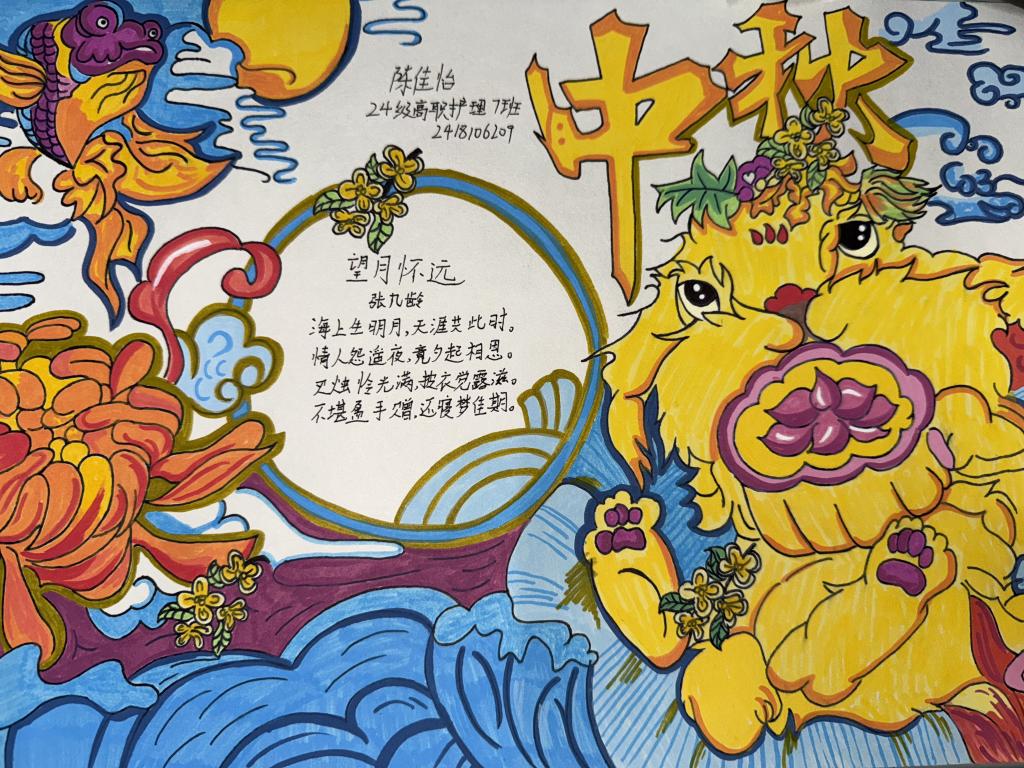 中秋
陈佳怡
24级高职护理7班
2418106209
望月怀远
张九龄
海上生明月,天涯共此时。
情人怨遥夜,竟夕起相思。
灭烛怜光满,披衣觉露滋。
不堪盈手赠,还寝梦佳期。